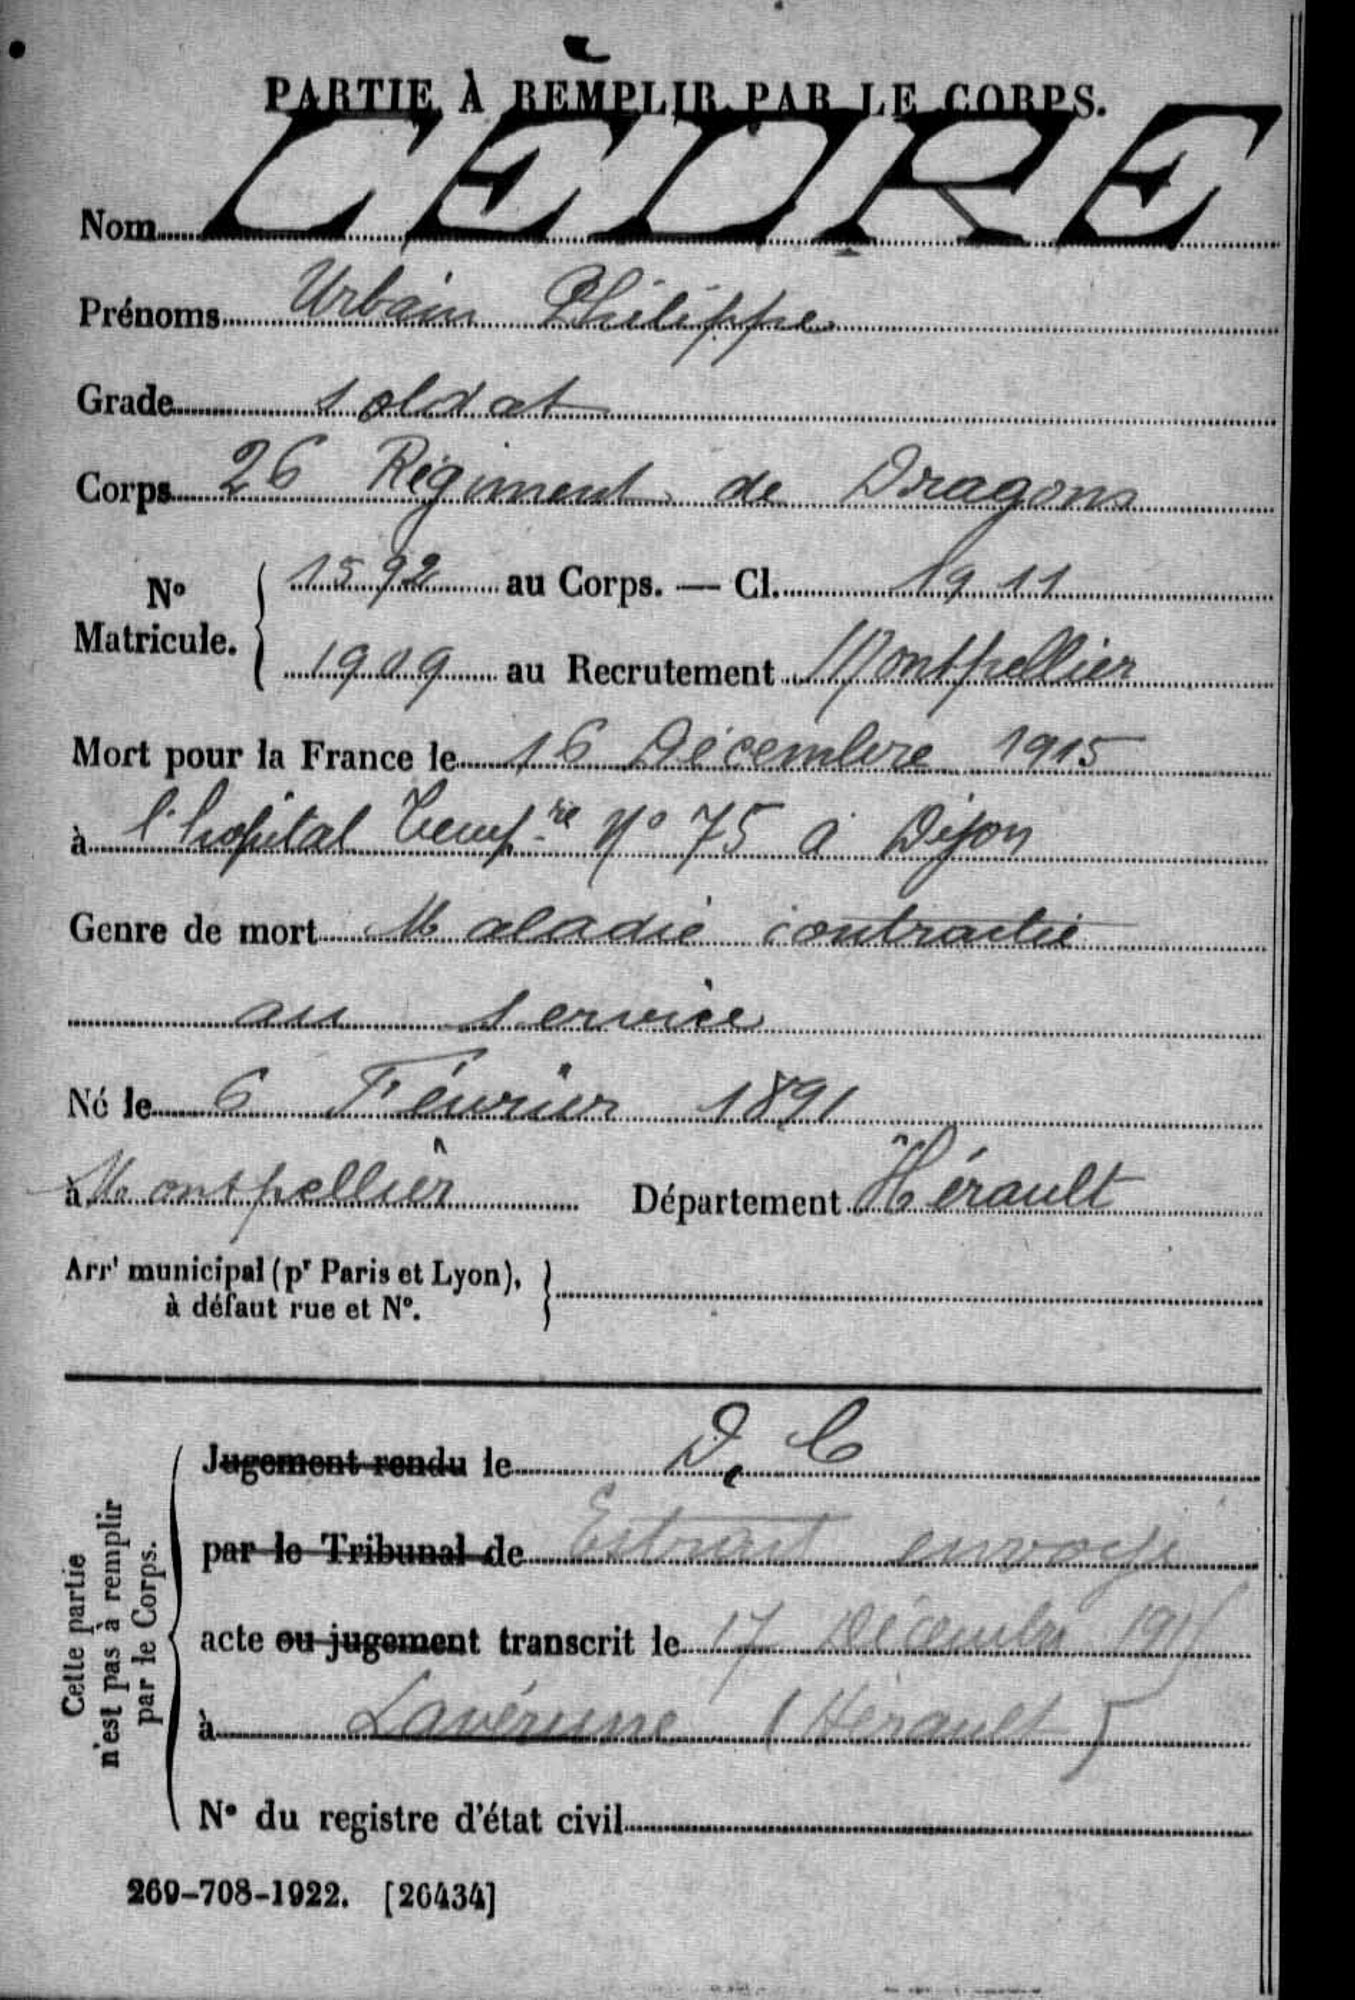 PARTIE À REMPLIR PAR LE CORPS.
Nom CEDRE
Prénoms Urbain Philippe
Grade soldat
Corps 26 Régiment de Dragons
N° Matricule. { 1592 au Corps. — Cl. 1911
1909 au Recrutement Montpellier
Mort pour la France le 16 Décembre 1915
à l'hopital Temp.re N° 75 à Dijon
Genre de mort Maladie contractée
au service
Né le 6 Février 1891
à Montpellier Département Hérault
Arrt municipal (pr Paris et Lyon),
à défaut rue et N°.
Jugement rendu le D. C
par le Tribunal de Extrait envoyé
acte ou jugement transcrit le 17 Décembre
à Lavérune (Hérault)
N° du registre d'état civil
Cette partie
n'est pas à remplir
par le Corps.
269-708-1922. [26434]